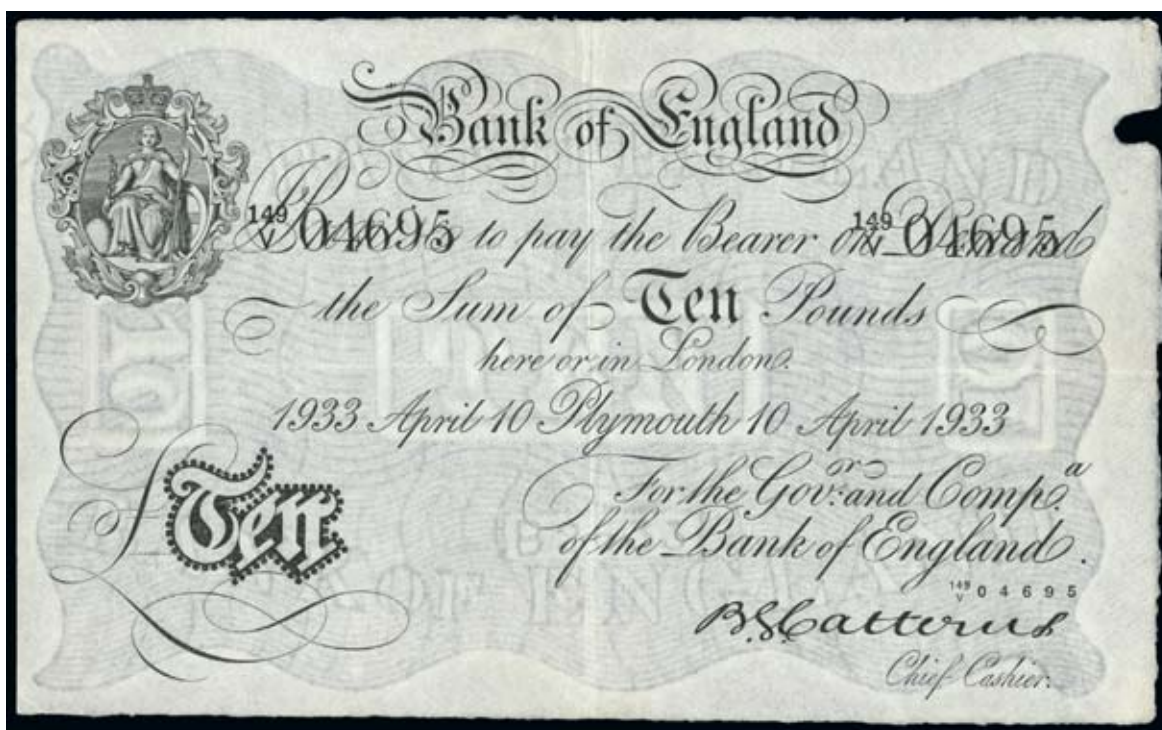 Bank of England
149 V 04695 149 V 04695
I Promise to pay the Bearer on Demand
the Sum of Ten Pounds
here or in London.
1933 April 10 Plymouth 10 April 1933
For the Gov.or and Comp.a
of the Bank of England.
£Ten
149 V 04695
B.G. Catterns
Chief Cashier.